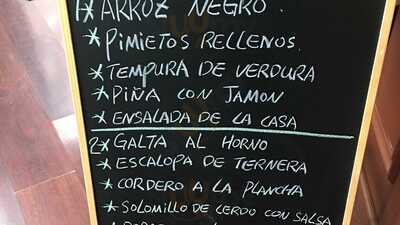 1* ARROZ NEGRO.
* PIMIETOS RELLENOS.
* TEMPURA DE VERDURA
* PIÑA CON JAMON
* ENSALADA DE LA CASA
2* GALTA AL HORNO
* ESCALOPA DE TERNERA
* CORDERO A LA PLANCHA
* SOLOMILLO DE CERDO CON SALSA